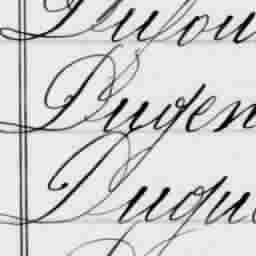 Dufou
Dugen
Duque